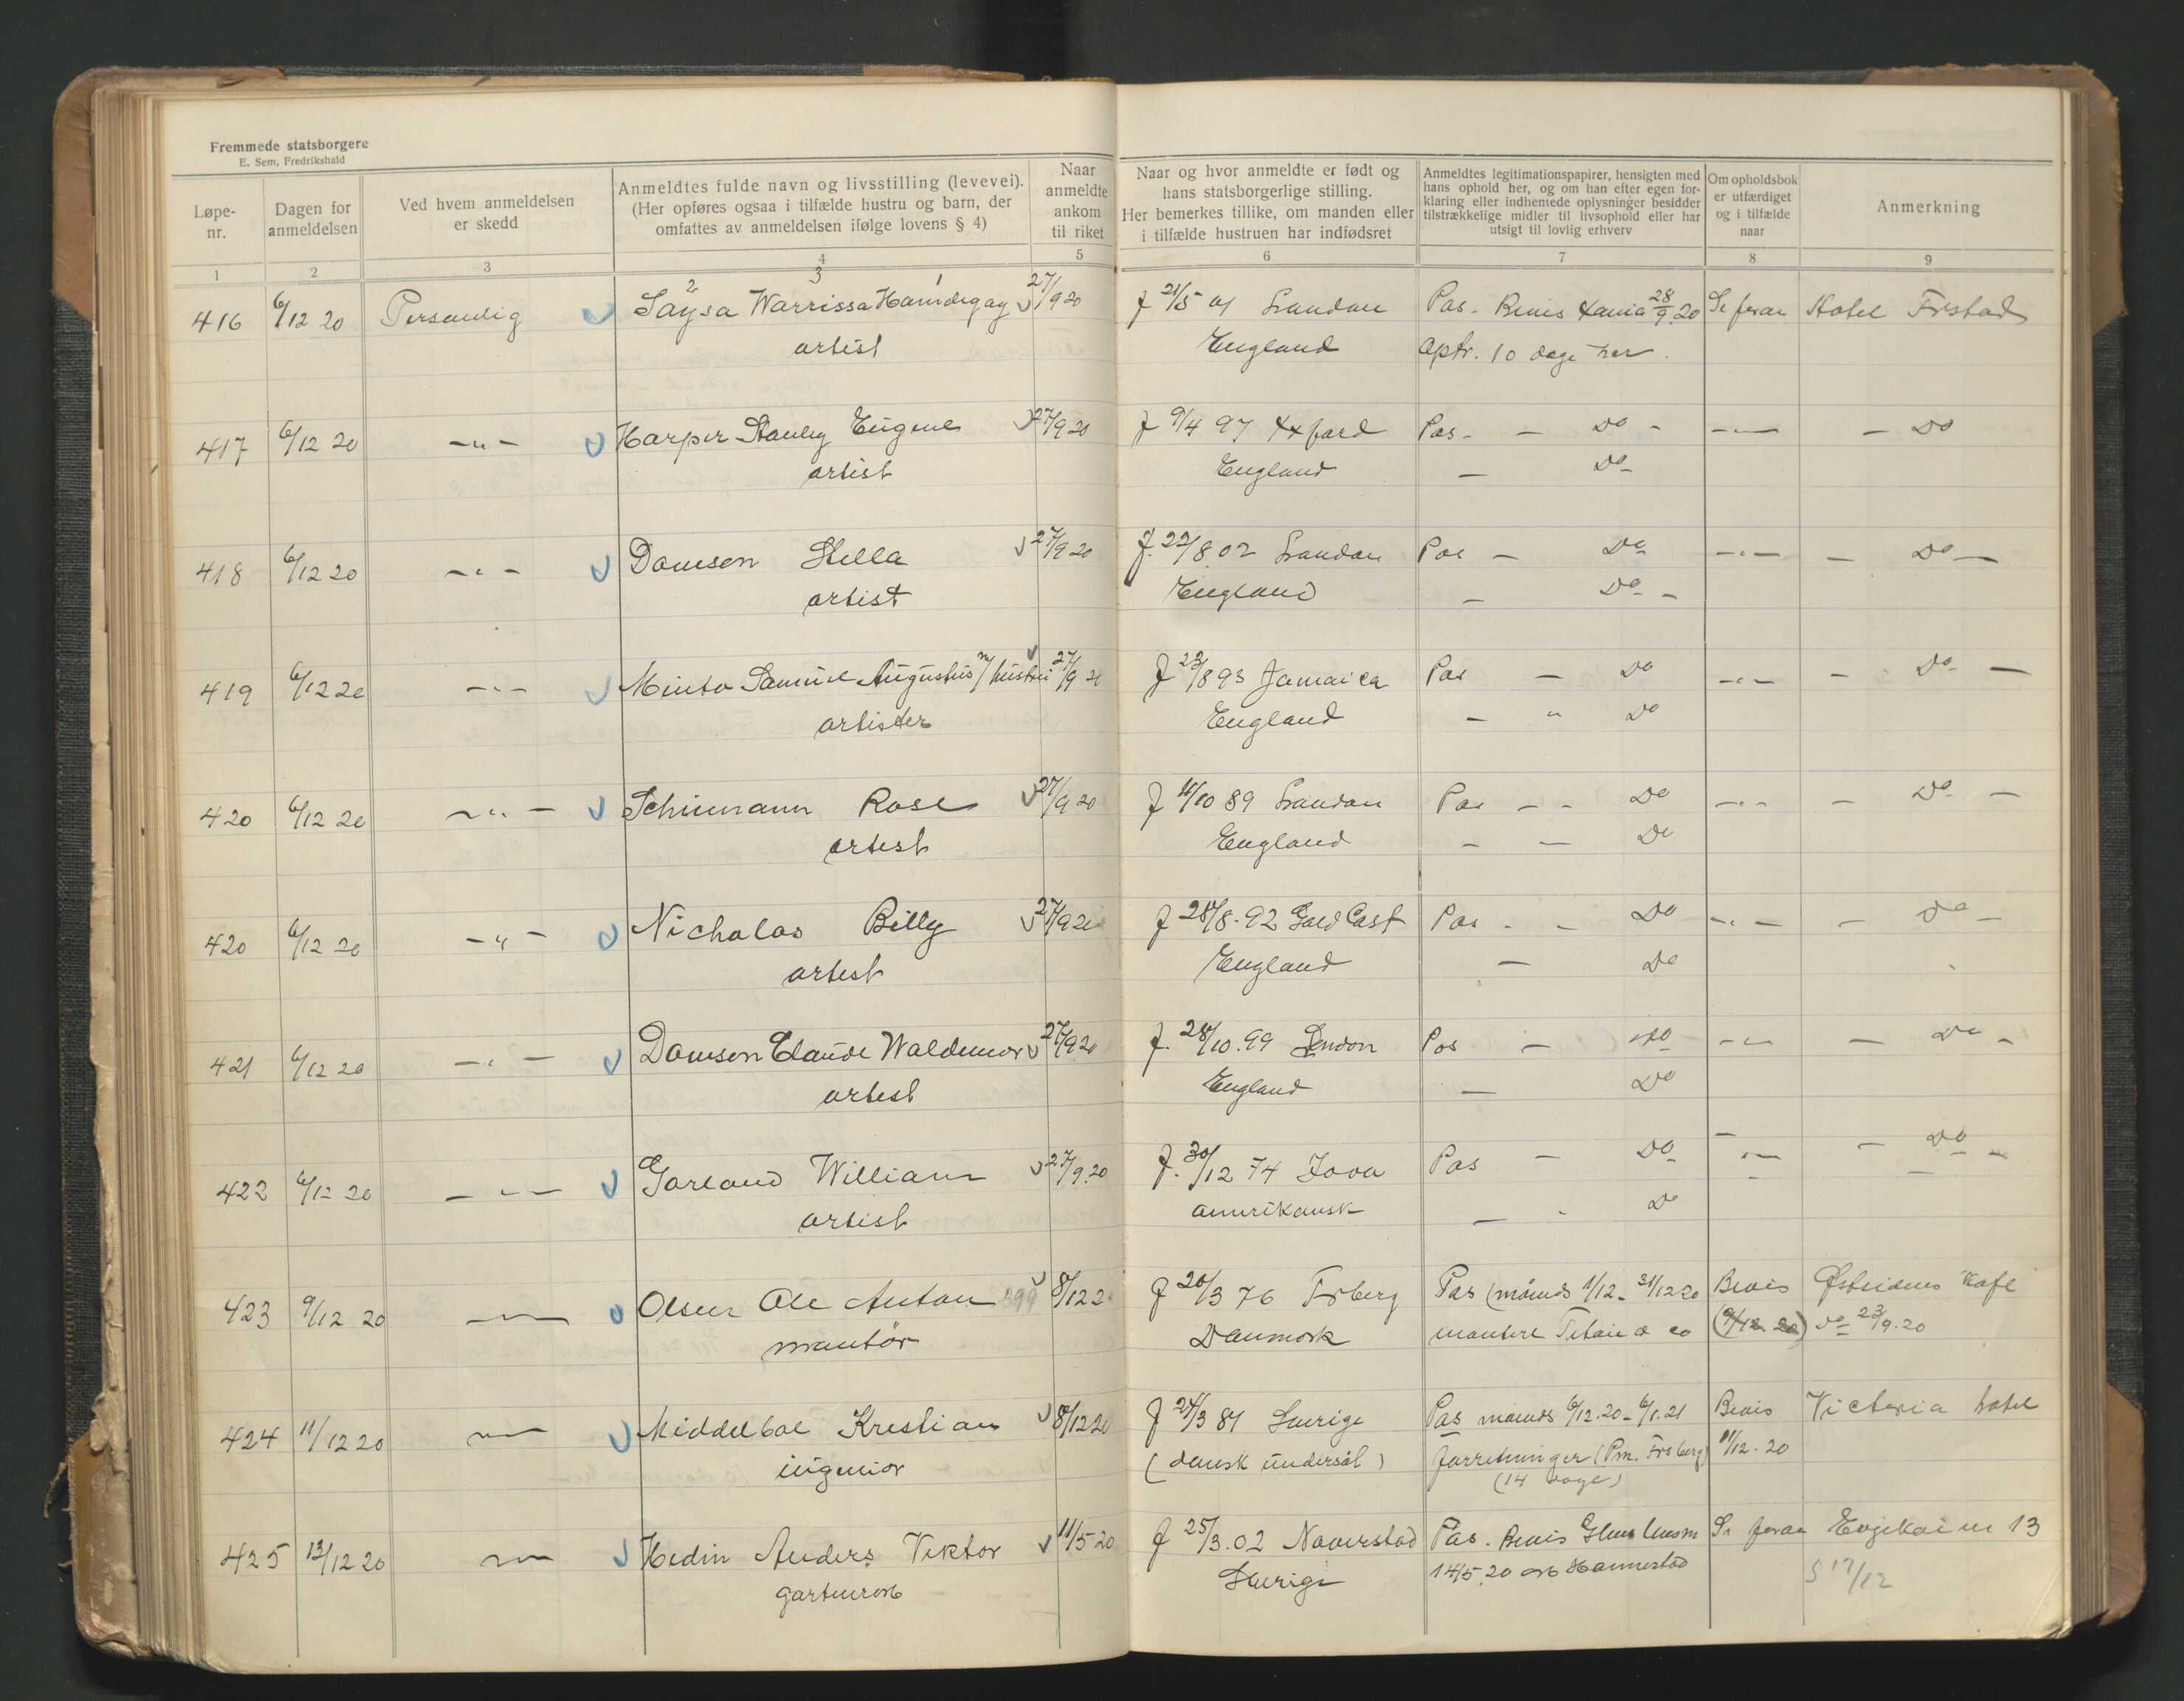 Fremmede statsborgere
E. Sem, Fredrikshald
Løpe-nr.
Dagen for anmeldelsen
Ved hvem anmeldelsen er skedd
Anmeldtes fulde navn og livsstilling (levevei).
(Her opføres ogsaa i tilfælde hustru og barn, der
omfattes av anmeldelsen ifølge lovens § 4)
Naar anmeldte ankom til riket
Naar og hvor anmeldte er født og
hans statsborgerlige stilling.
Her bemerkes tillike, om manden eller
i tilfælde hustruen har indfødsret
Anmeldtes legitimationspapirer, hensigten med
hans ophold her, og om han efter egen for-
klaring eller indhentede oplysninger besidder
tilstrækkelige midler til livsophold eller har
utsigt til lovlig erhverv
Om opholdsbok
er utfærdiget
og i tilfælde
naar
Anmerkning
1 2 3 4 5 6 7 8 9
2 3 1
416 6/12 20 Personlig Saysa Warrissa Hamdegay 27/9 20 f 21/5 01 London Pas. Bevis Xania 28/9.20 Se foran Hotel Frstad
artist England Optr. 10 dage her.
417 6/12 20 -"- Harper Stanley Eugene 27/9 20 f 9/4 97 Oxford Pas - - Do - -"- - Do
artist England - Do -
418 6/12 20 -"- Dowson Stella 27/9 20 f. 22/8.02 London Pas - Do -"- - Do -
artist England - Do -
419 6/12 20 -"- Minto Samuel Augustus m/ hustru 27/9 20 f 22/8 93 Jamaica Pas - Do -"- - Do -
artister England - " Do
420 6/12 20 -"- Schumann Rose 27/9 20 f 11/10 89 London Pas - - Do -"- - Do -
artist England - - Do
420 6/12 20 -"- Nicholas Billy 27/9 20 f 28/8.92 Gold Cast Pas - - Do -"- - Do -
artist England - Do
421 6/12 20 -"- Dowson Claude Waldemar 27/9 20 f. 28/10.99 London Pas - Do -"- - Do -
artist England - Do
422 6/12 20 -"- Garland William 27/9.20 f. 30/12 74 Iova Pas - Do -"- - Do -
artist amerikansk - - Do
423 9/12 20 -"- Olsen Ole Anton 399 8/12 20 f 20/3 76 Frberg Pas (månds 1/12 - 31/12 20 Bevis Østsidens Kafe
montör Danmork montere Titan & co (9/12 20) Do 23/9.20
424 11/12 20 -"- Middelboe Kristian 8/12 20 f 24/3 81 Sverige Pas månds 6/12.20 - 6/1.21 Bevis Victoria hotel
ingeniør (dansk undersåt) forretninger (Pm. Frsberg) 11/12.20
(14 dage)
425 13/12 20 -"- Hedin Anders Viktor 11/5 20 f 25/3.02 Naverstad Pas. Bevis Se foran Engekai nr 13
gartner Sverige 14/5.20 S 17/12